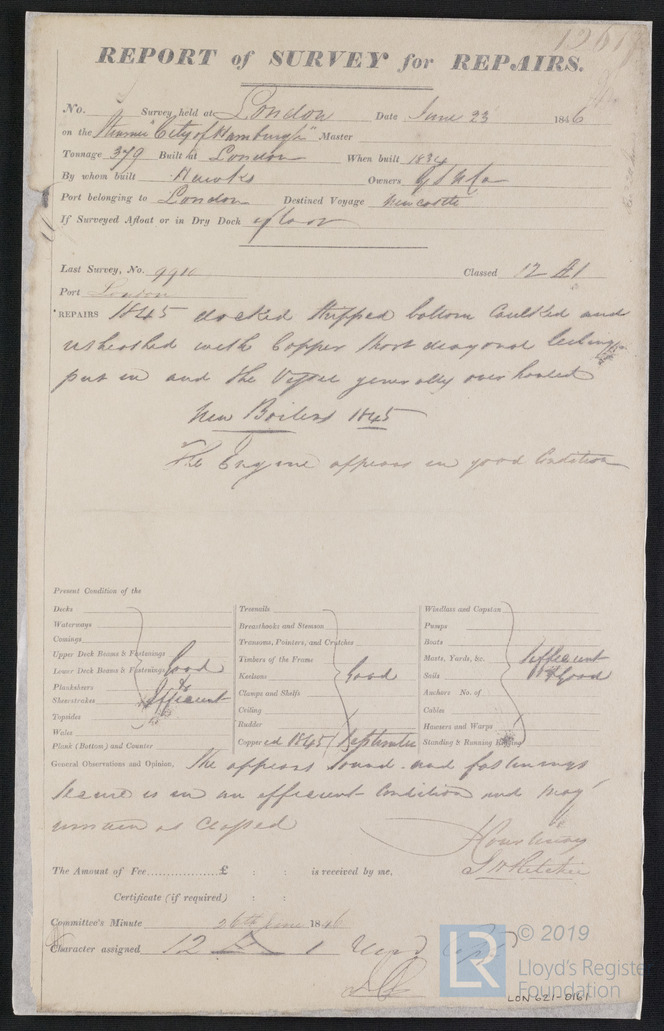 REPORT of SURVEY for REPAIRS.
No. Survey held at London Date June 23 1846
on the Steamer "City of Hamburgh" Master
Tonnage 379 Built at London When built 1834
By whom built Hawks Owners
Port belonging to London Destined Voyage Newcastle
If Surveyed Afloat or in Dry Dock afloat
Last Survey, No. 9911 Classed 12 A1
Port London
REPAIRS 1845 docked stripped bottom Caulked and
resheathed with Copper Short diagonal ceiling
put in and the Vessel generally over hauled
New Boilers 1845
The Engine appears in good Condition
Present Condition of the
Decks
Waterways
Comings
Upper Deck Beams & Fastenings
Lower Deck Beams & Fastenings
Planksheers
Sheerstrakes
Topsides
Wales
Plank (Bottom) and Counter
Good
&
Efficient
Treenails
Breasthooks and Stemson
Transoms, Pointers, and Crutches
Timbers of the Frame
Keelsons
Clamps and Shelfs
Ceiling
Rudder
Copper ed 1845 September
Good
Windlass and Capstan
Pumps
Boats
Masts, Yards, &c.
Sails
Anchors No. of
Cables
Hawsers and Warps
Standing & Running Rigging
Efficient
& Good
General Observations and Opinion, She appears Sound and fastenings
Secure is in an efficient Condition and may
remain as Classed
The Amount of Fee £ : : is received by me,
Certificate (if required) : :
Committee's Minute 26th June 1846
Character assigned 12 A 1
© 2019
LR
Lloyd's Register
Foundation
LON-621-0161